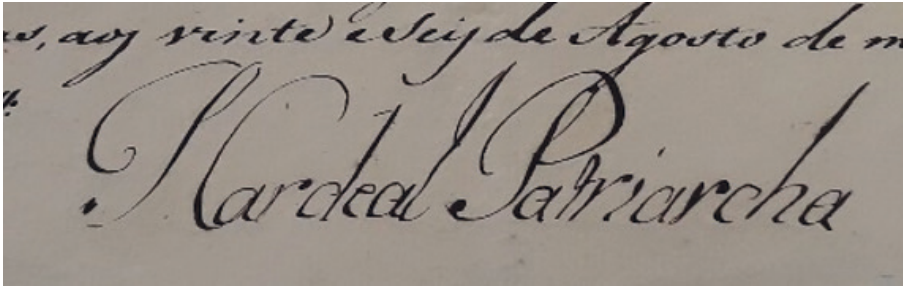 aos vinte e Seis de Agosto de
Cardeal Patriarcha